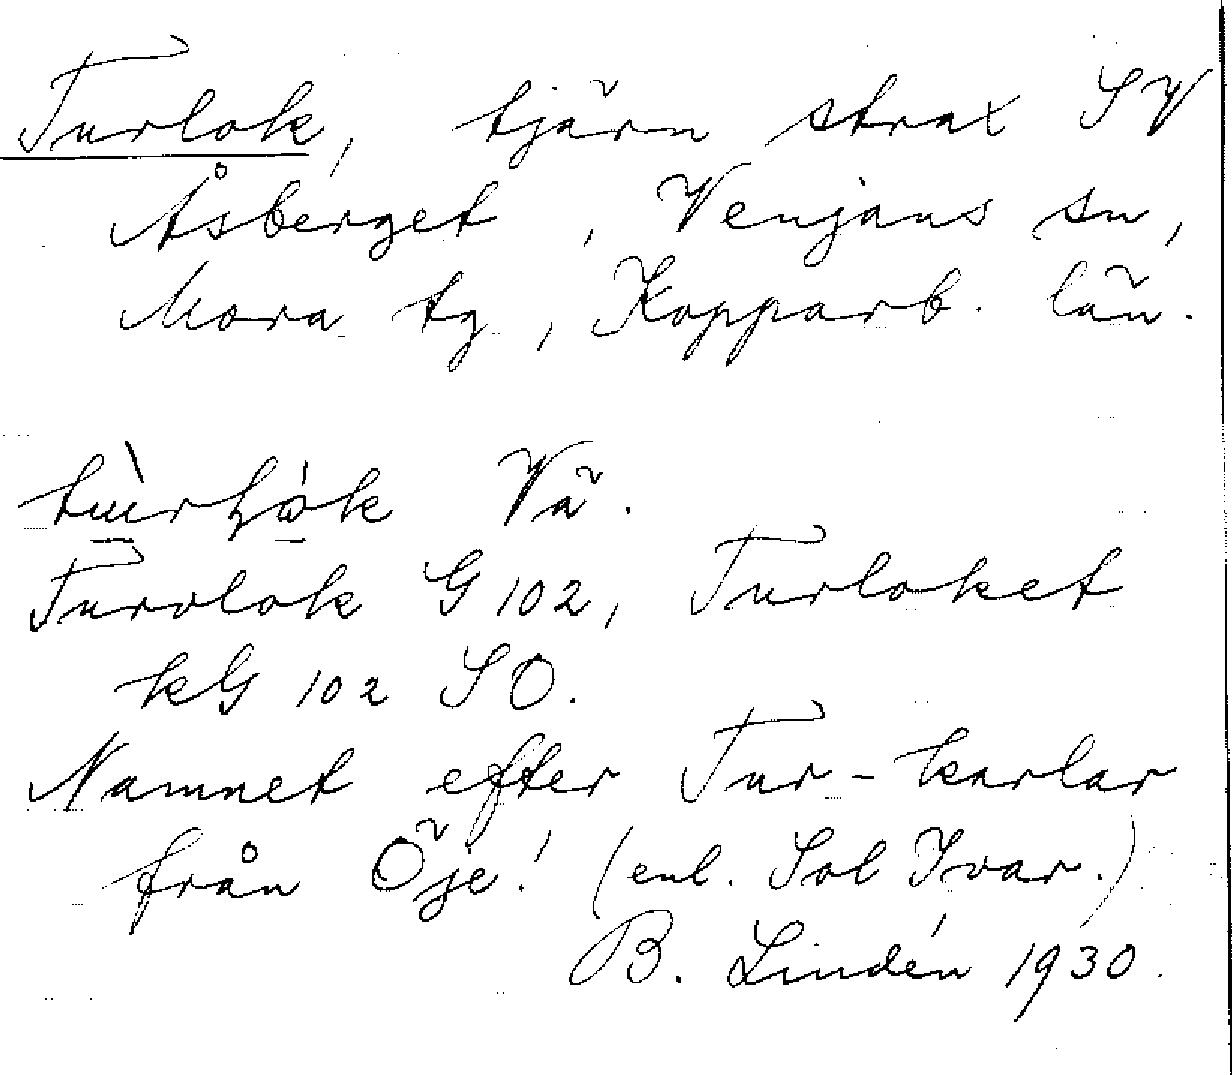 Turlok, tjärn strax SV
Åsberget, Venjans sn,
Mora tg, Kopparb. län.
Vä.
Turvlok G 102, Turloket
kG 102 SO.
Namnet efter Tur-karlar
från Öje! (enl. Sol Ivar.)
B. Lindén 1930.